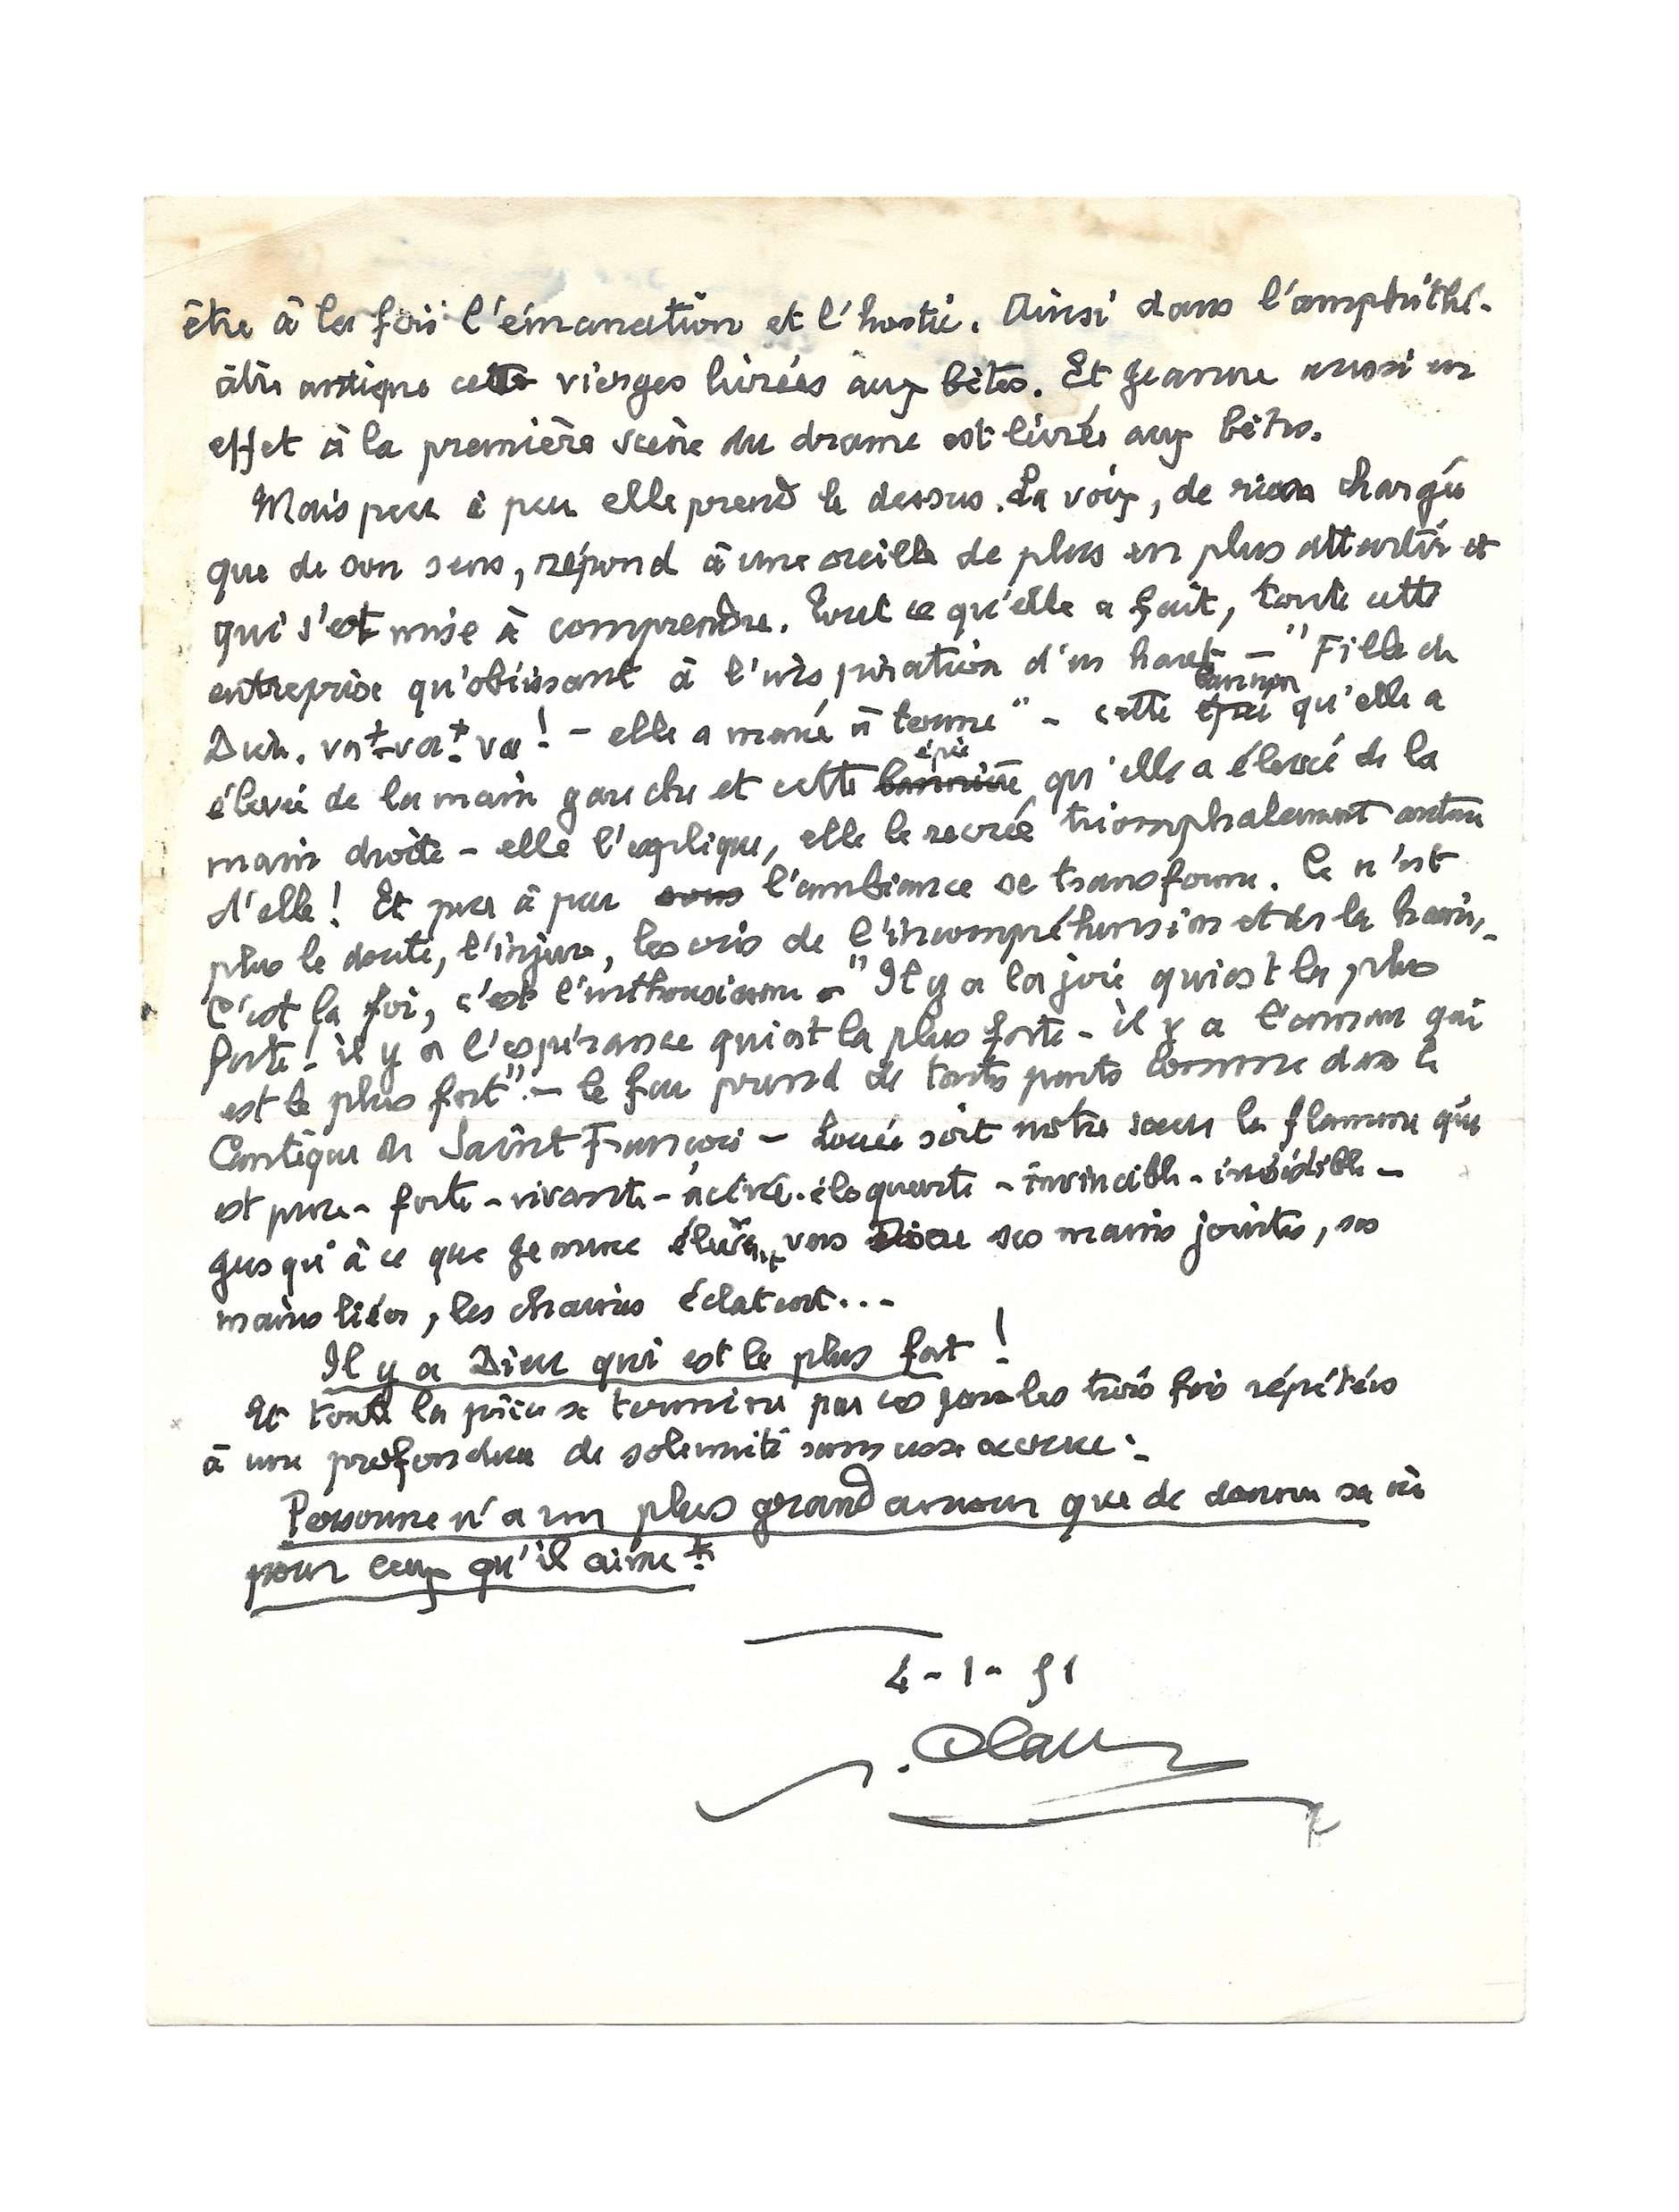 être à la fois l'émanation et l'hostie. Ainsi dans l'amphithé-
âtre antique cette vierges livrées aux bêtes. Et Jeanne aussi en
effet à la première scène du drame est livrée aux bêtes.
Mais peu à peu elle prend le dessus. La voix, de rien chargée
que de son sens, répond à une oreille de plus en plus attentive et
qui s'est mise à comprendre. Tout ce qu'elle a fait, toute cette
entreprise qu'obéissant à l'inspiration d'en haut - "Fille de
Dieu, va! va! va! - elle a mené à terme" - cette bannière qu'elle a
élevée de la main gauche et cette épée qu'elle a élevée de la
main droite - elle l'explique, elle le recrée triomphalement autour
d'elle! Et peu à peu sous l'ambiance se transforme. Ce n'est
plus le doute, l'injure, les cris de l'incompréhension et de la haine,
C'est la foi, c'est l'enthousiasme - "Il y a la joie qui est la plus
forte! il y a l'espérance qui est la plus forte - il y a l'amour qui
est le plus fort" - le feu prend de toutes parts comme dans le
Cantique de Saint François - Louée soit notre soeur la flamme qui
est pure - forte - vivante - acérée - éloquente - invincible - irrésistible -
jusqu'à ce que Jeanne élevant vers Dieu ses mains jointes, ses
mains liées, les chaînes éclatent...
Il y a Dieu qui est le plus fort!
Et toute la pièce se termine par ces paroles trois fois répétées
à une profondeur de solennité sans cesse accrue:
Personne n'a un plus grand amour que de donner sa vie
pour ceux qu'il aime!
4-1-51
P. Claudel